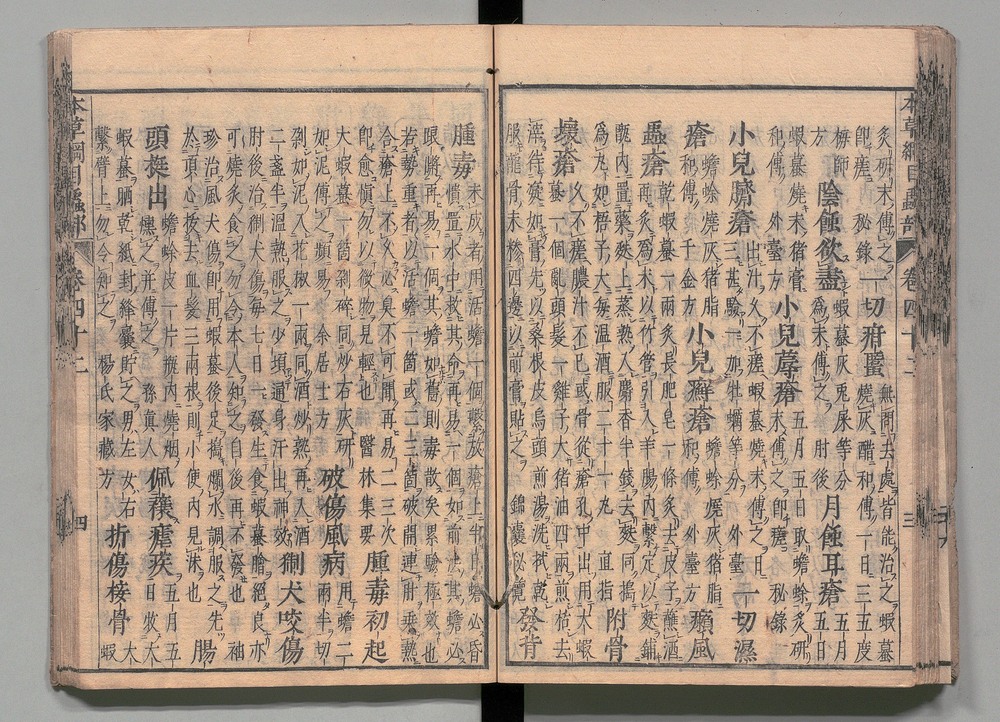 炙研末傅之 一切疳䘌 無問去處皆能治之蝦蟇
卽瘥 秘錄 燒灰醋和傅一日三五度
梅師 陰蝕欲盡 蝦蟇灰兎屎等分 月蝕耳瘡 五月五日
方 爲末傅之 肘後
蝦蟇燒末猪膏 小兒蓐瘡 五月五日取蟾蜍炙研
和傅 外臺方 末猪膏和傅之卽瘥 秘錄
小兒臍瘡 出汁久不瘥蝦蟇燒末傅之日 一切濕
三甚驗一加牡蠣等分 外臺
瘡 蟾蜍燒灰猪脂 小兒癬瘡 蟾蜍燒灰猪脂 癩風
和傅 千金方 和傅 外臺方
蟲瘡 乾蝦蟇一兩炙長肥皂一條炙去皮子蘸酒
再炙爲末以竹管引入羊腸內繫定以麩鋪
甑內置藥麩上蒸熟入麝香半錢去麩同搗 附骨
爲丸如梧子大每溫酒服二十一丸 直指
壞瘡 久不瘥膿汁不已或骨從瘡孔中出用大蝦
蟇一個亂頭髮一雞子大猪油四兩煎枯去
滓待凝如膏先以桑根皮烏頭煎湯洗拭乾 發背
煆龍骨末糝四邊以前膏貼之 錦囊秘覽
腫毒 未成者用活蟾一個繫放瘡上半日蟾必昏
憒置水中救其命再易一個如前法其蟾必
踉蹡再易一個其蟾如舊則毒散矣累驗極效也
若勢重者以活蟾一箇或二三箇破開連肚乘熱
合瘡上不久必臭不可聞再易二三次 腫毒初起
卽愈愼勿以微物見輕也 醫林集要
大蝦蟇一箇剁碎同炒石灰研 破傷風病 用蟾二兩半切
如泥傅之頻易 余居士方
剁如泥入花椒一兩同酒炒熟再入酒 猘犬咬傷
二盞半溫熱服之少頃通身汗出神效
肘後治猘犬傷每七日一發生食蝦蟇膾絕良亦
可燒炙食之勿令本人知之自後再不發也 袖
珍治風犬傷卽用蝦蟇後足搗爛水調服之先
於頂心拔去血髮三兩根則小便內見沫也 腸
頭挺出 蟾蜍皮一片瓶內燒烟 佩禳瘧疾 五月五
燻之并傅之 孫眞人 日收大
蝦蟇晒乾紙封絳囊貯之男左女右 折傷接骨 大蝦
繫臂上勿令知之 楊氏家藏方
本草綱目蟲部 卷四十二
三
本草綱目蟲部 卷四十二
四